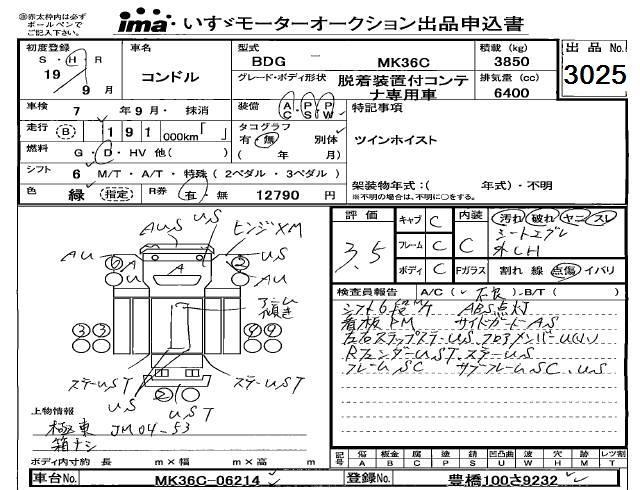 ※赤太枠内は必ず
ボールペンで
ご記入下さい。
ima いすゞモーターオークション出品申込書
初度登録 S・H・R 19年 9月
車名 コンドル
型式 BDG － MK36C
積載 (kg) 3850
出品No. 3025
グレード・ボディ形状 脱着装置付コンテナ専用車
排気量 (cc) 6400
車検 7年9月・抹消
装備 AC・PS・PW
特記事項
走行 (B) 191 000km「 」
タコグラフ 有・無 別体
( 年 月)
ツインホイスト
燃料 G・D・HV 他( )
シフト 6 M/T・A/T・特殊 ( 2ペダル・3ペダル )
色 緑 (指定) R券 有・無 12790 円
架装物年式：( 年式)・不明
※不明の場合は、不明に○をする。
評価 3.5
キャブ C 内装 C 汚れ 破れ ヤニ スレ
フレーム C シートエグレ
外LH
ボディ C Fガラス 割れ 線 点傷 イバリ
AUS US ヒンジXM
AU ⑥ A A ② AU
アーム傾き
③③ ④④
ステーUST US ステーUST
US UST
検査員報告 A/C ( 不良 )・B/T ( )
シフト6段M/T ABS点灯
看板PM サイドガードAS
左右ステップステーUS フロアメンバーU(ソ)
RフェンダーUST.ステーUS
フレームSC サブフレームSC.US
上物情報
極東 JM04-53
箱ナシ
ボディ内寸約 長 m×幅 m×高 m
記号 傷 板金 腐 塗 錆 凹凸曲 波 穴 サメ レツ割
A B C P S U W H M T
車台No. MK36C-06214
登録No. 豊橋100さ9232